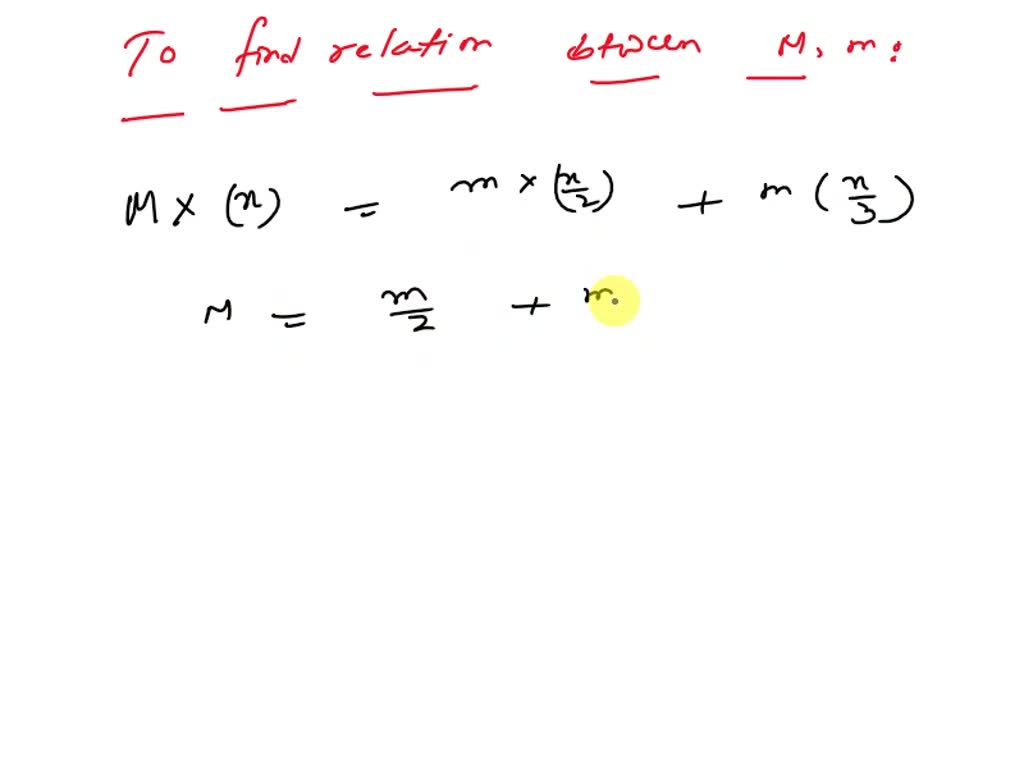 To find relation between M, m:
M × (x) = m × (x/2) + m (x/3)
M = m/2 + m